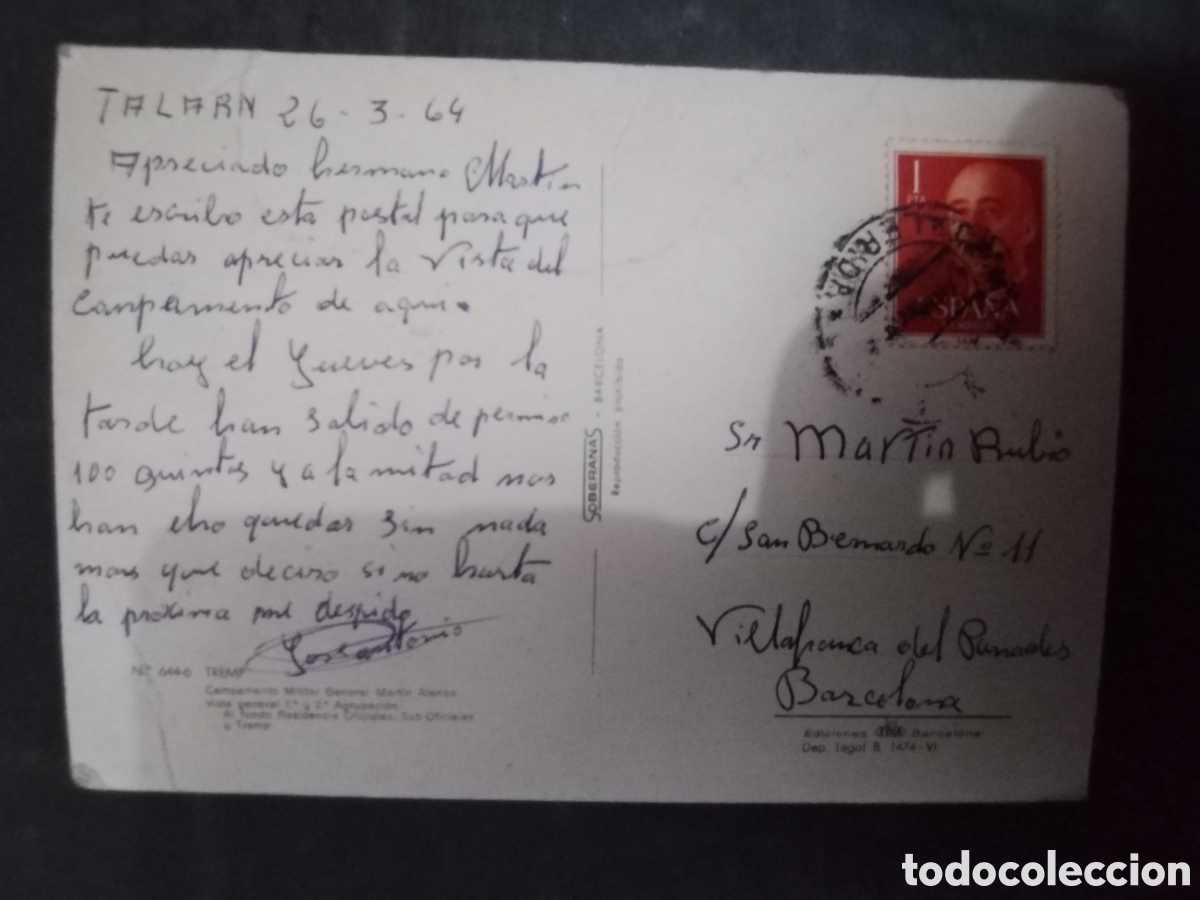 TALARN 26-3-64
Apreciado hermano Martin
te escribo esta postal para que
puedas apreciar la Vista del
Campamento de aqui.
hoy el Jueves por la
tarde han salido de permiso
100 quintos y a la mitad nos
han eho quedar sin nada
mas que deciro si no hasta
la proxima me despido
Jose antonio
Nº 6446 TREMP
Campamento Militar General Martin Alonso
Vista general 1.ª y 2.ª Agrupación
Al fondo Residencia Oficiales, Sub-Oficiales
y Tremp
SOBERANAS - BARCELONA
Reproducción prohibida
1
PTA
ESPAÑA
CORREOS
LERIDA
Sr Martin Rubio
C/ San Bernardo Nº 11
Villafranca del Panades
Barcelona
Ediciones Barcelona
Dep. Legal B. 1474-VI
todocoleccion